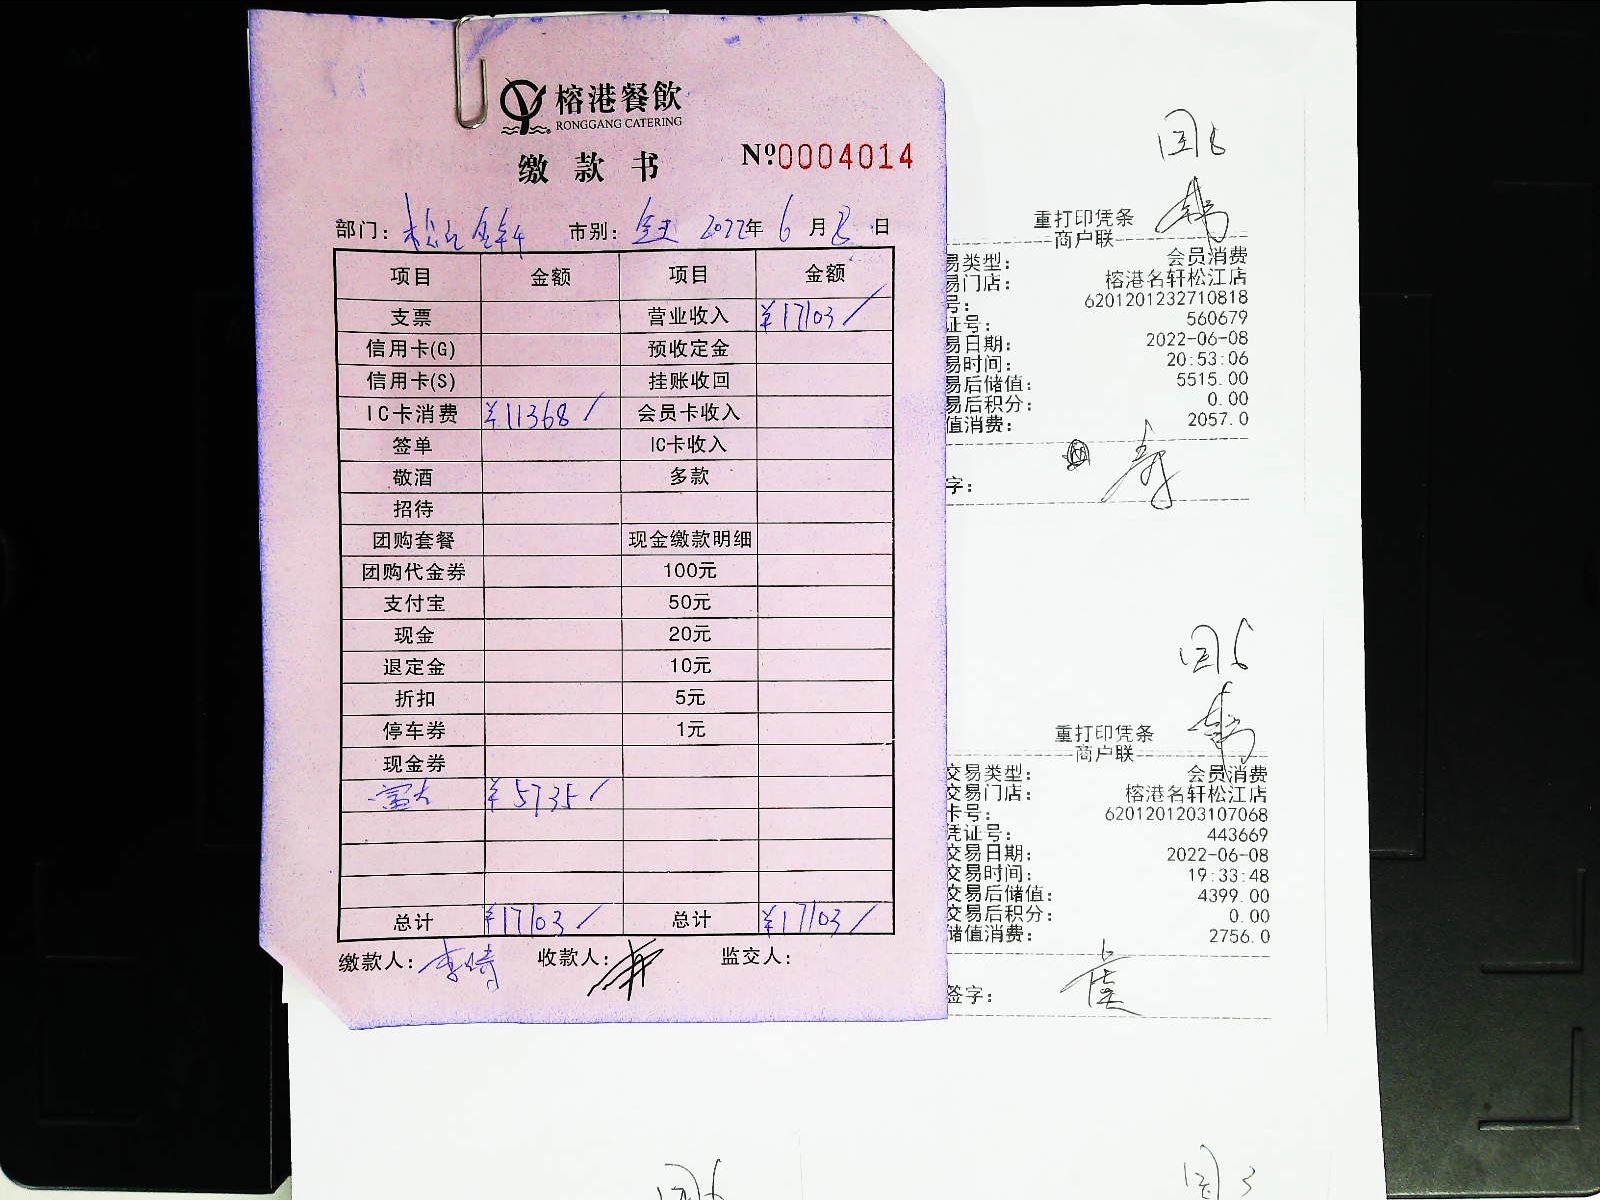 榕港餐飲
RONGGANG CATERING
缴款书 Nº0004014
部门: 市别: 全天 2022年 6月8日
项目 金额 项目 金额
支票 营业收入 ¥17103
信用卡(G) 预收定金
信用卡(S) 挂账收回
IC卡消费 ¥11368 会员卡收入
签单 IC卡收入
敬酒 多款
招待
团购套餐 现金缴款明细
团购代金券 100元
支付宝 50元
现金 20元
退定金 10元
折扣 5元
停车券 1元
现金券
富大 ¥5735
总计 ¥17103 总计 ¥17103
缴款人: 收款人: 监交人:
重打印凭条
商户联
易类型: 会员消费
易门店: 榕港名轩松江店
号: 6201201232710818
证号: 560679
易日期: 2022-06-08
易时间: 20:53:06
易后储值: 5515.00
易后积分: 0.00
值消费: 2057.0
字:
重打印凭条
商户联
交易类型: 会员消费
交易门店: 榕港名轩松江店
卡号: 6201201203107068
凭证号: 443669
交易日期: 2022-06-08
交易时间: 19:33:48
交易后储值: 4399.00
交易后积分: 0.00
储值消费: 2756.0
签字: